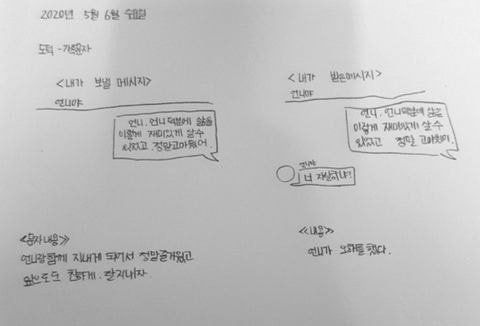 2020년 5월 6일 수요일
도덕 -
<내가 보낼 메시지>
언니야
언니, 언니덕분에 삶을
이렇게 재미있게 살수
있었고 정말고마웠어.
<문자내용>
언니랑함께 지내게 되어서 정말즐거웠고
앞으로도 친하게. 잘지내자.
<내가 받은메시지>
언니야
언니, 언니덕분에 삶을
이렇게 재미있게 살수
있었고 정말 고마웠어.
언니야
너 자살하냐?
<내용>
언니가 오해를 했다.